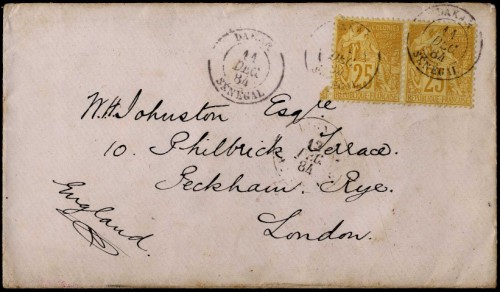 DAKAR
11
DEC
84
SENEGAL
25
25
11
DEC
84
SENEGAL
W.H. Johnston Esqre
10. Philbrick Terrace.
12
DEC
84
Peckham. Rye.
England.
London.